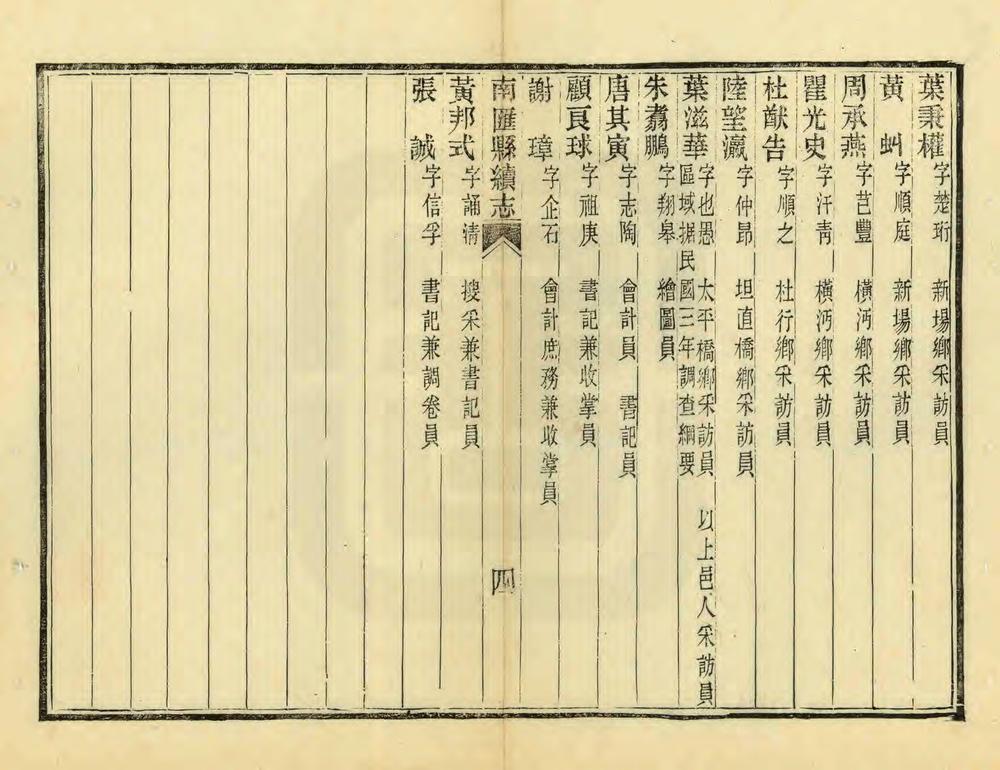 葉秉權 字楚珩 新場鄉采訪員
黃虯 字順庭 新場鄉采訪員
周承燕 字芑豐 橫沔鄉采訪員
瞿光史 字汗靑 橫沔鄉采訪員
杜猷告 字順之 杜行鄉采訪員
陸望瀛 字仲昂 坦直橋鄉采訪員
葉滋華 字也愚 太平橋鄉采訪員 以上邑人采訪員
區域据民國三年調查綱要
朱翥鵬 字翔皋 繪圖員
唐其寅 字志陶 會計員 書記員
顧良球 字祖庚 書記兼收掌員
謝璋 字企石 會計庶務兼收掌員
南匯縣續志 四
黃邦式 字誦淸 搜采兼書記員
張誠 字信孚 書記兼調卷員